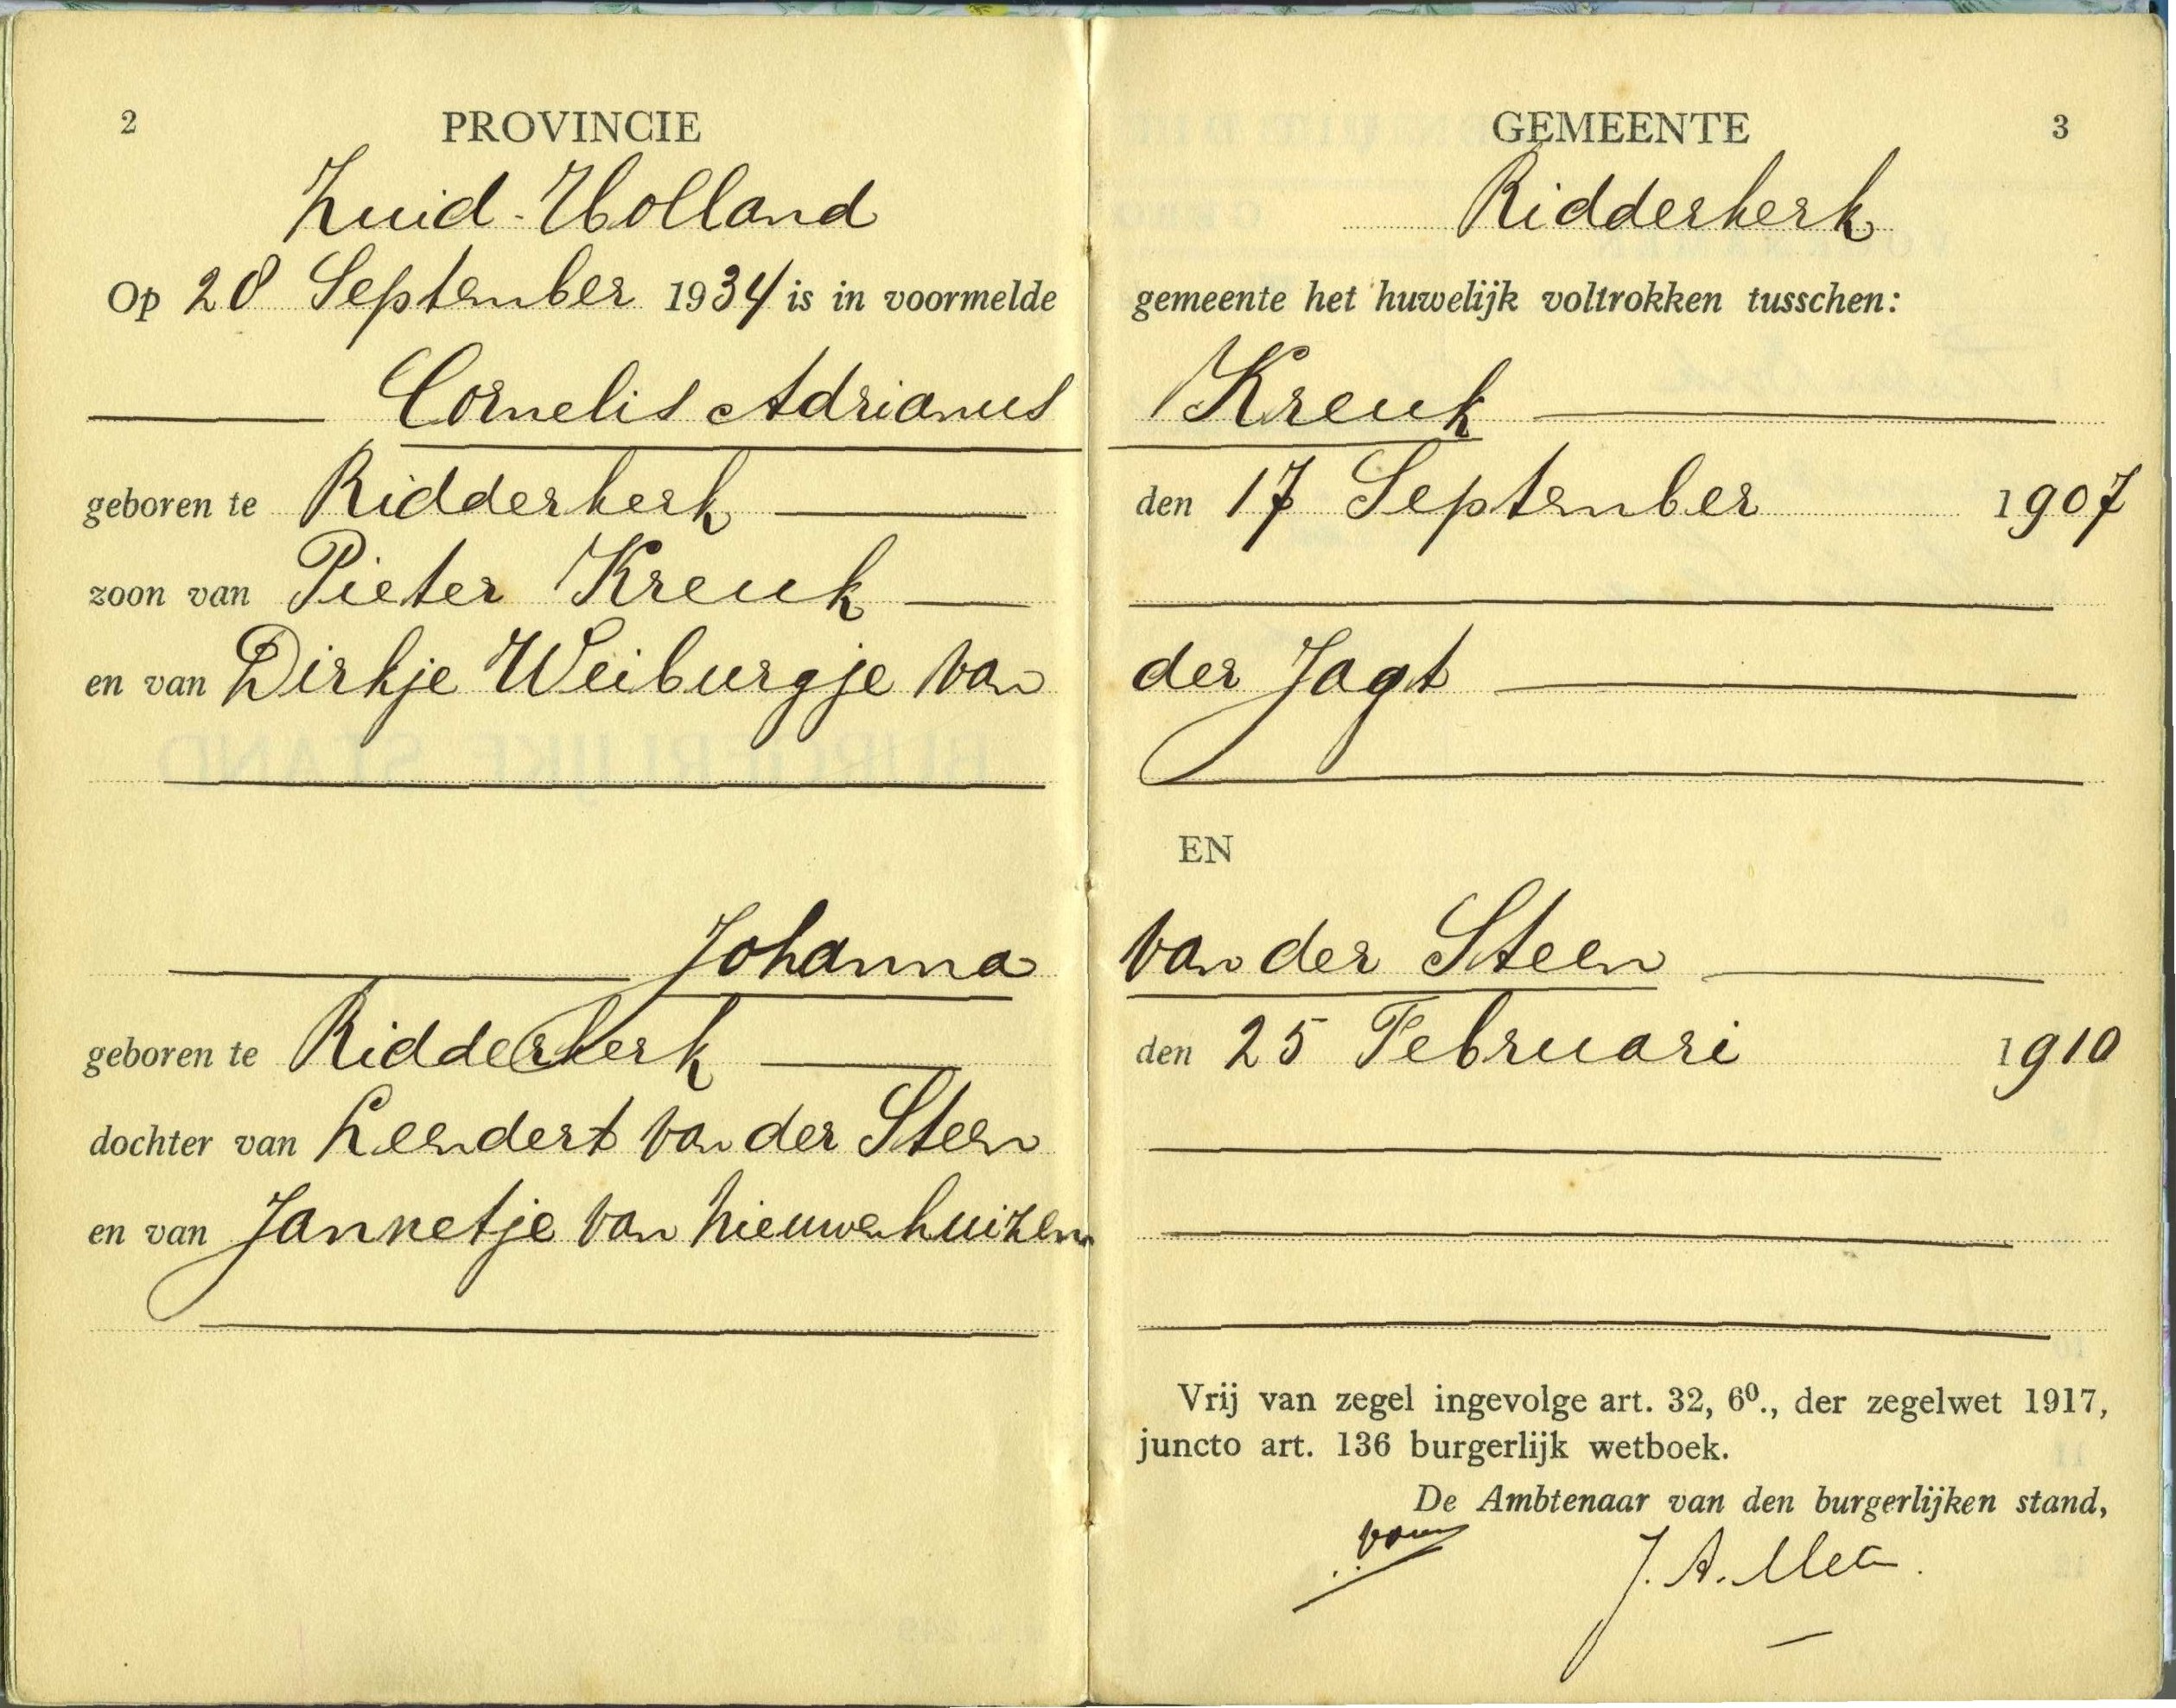 2 PROVINCIE
Zuid-Holland
Op 28 September 1934 is in voormelde
Cornelis Adrianus
geboren te Ridderkerk
zoon van Pieter Kreuk
en van Dirkje Weiburgje van
Johanna
geboren te Ridderkerk
dochter van Leendert van der Steen
en van Jannetje van Nieuwenhuizen
GEMEENTE 3
Ridderkerk
gemeente het huwelijk voltrokken tusschen:
Kreuk
den 17 September 1907
der Jagt
EN
van der Steen
den 25 Februari 1910
Vrij van zegel ingevolge art. 32, 6⁰., der zegelwet 1917,
juncto art. 136 burgerlijk wetboek.
De Ambtenaar van den burgerlijken stand,
J. A.